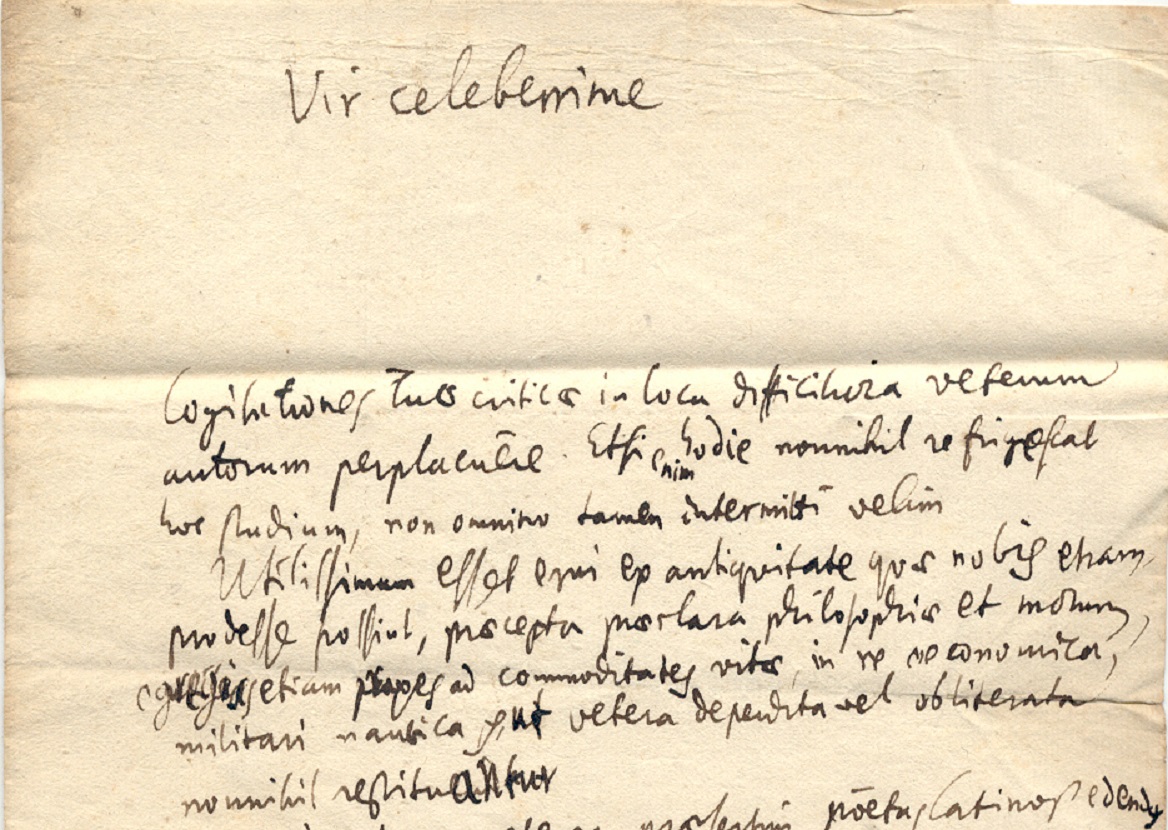 Vir celeberrime
Cogitationes Tuas criticas in loca difficiliora veterum
autorum perplacuêre. Etsi enim hodie nonnihil refrigescat
hoc studium, non omnino tamen intermitti velim
Utilissimum esset erui ex antiquitate quae nobis etiam
prodesse possint, praecepta praeclara philosophiae et morum,
egregias etiam opes ad commoditates vitae, in re oeconomica,
militari nautica ut vetera deperdita vel obliterata
nonnihil restituantur
poëtas Latinos edendos